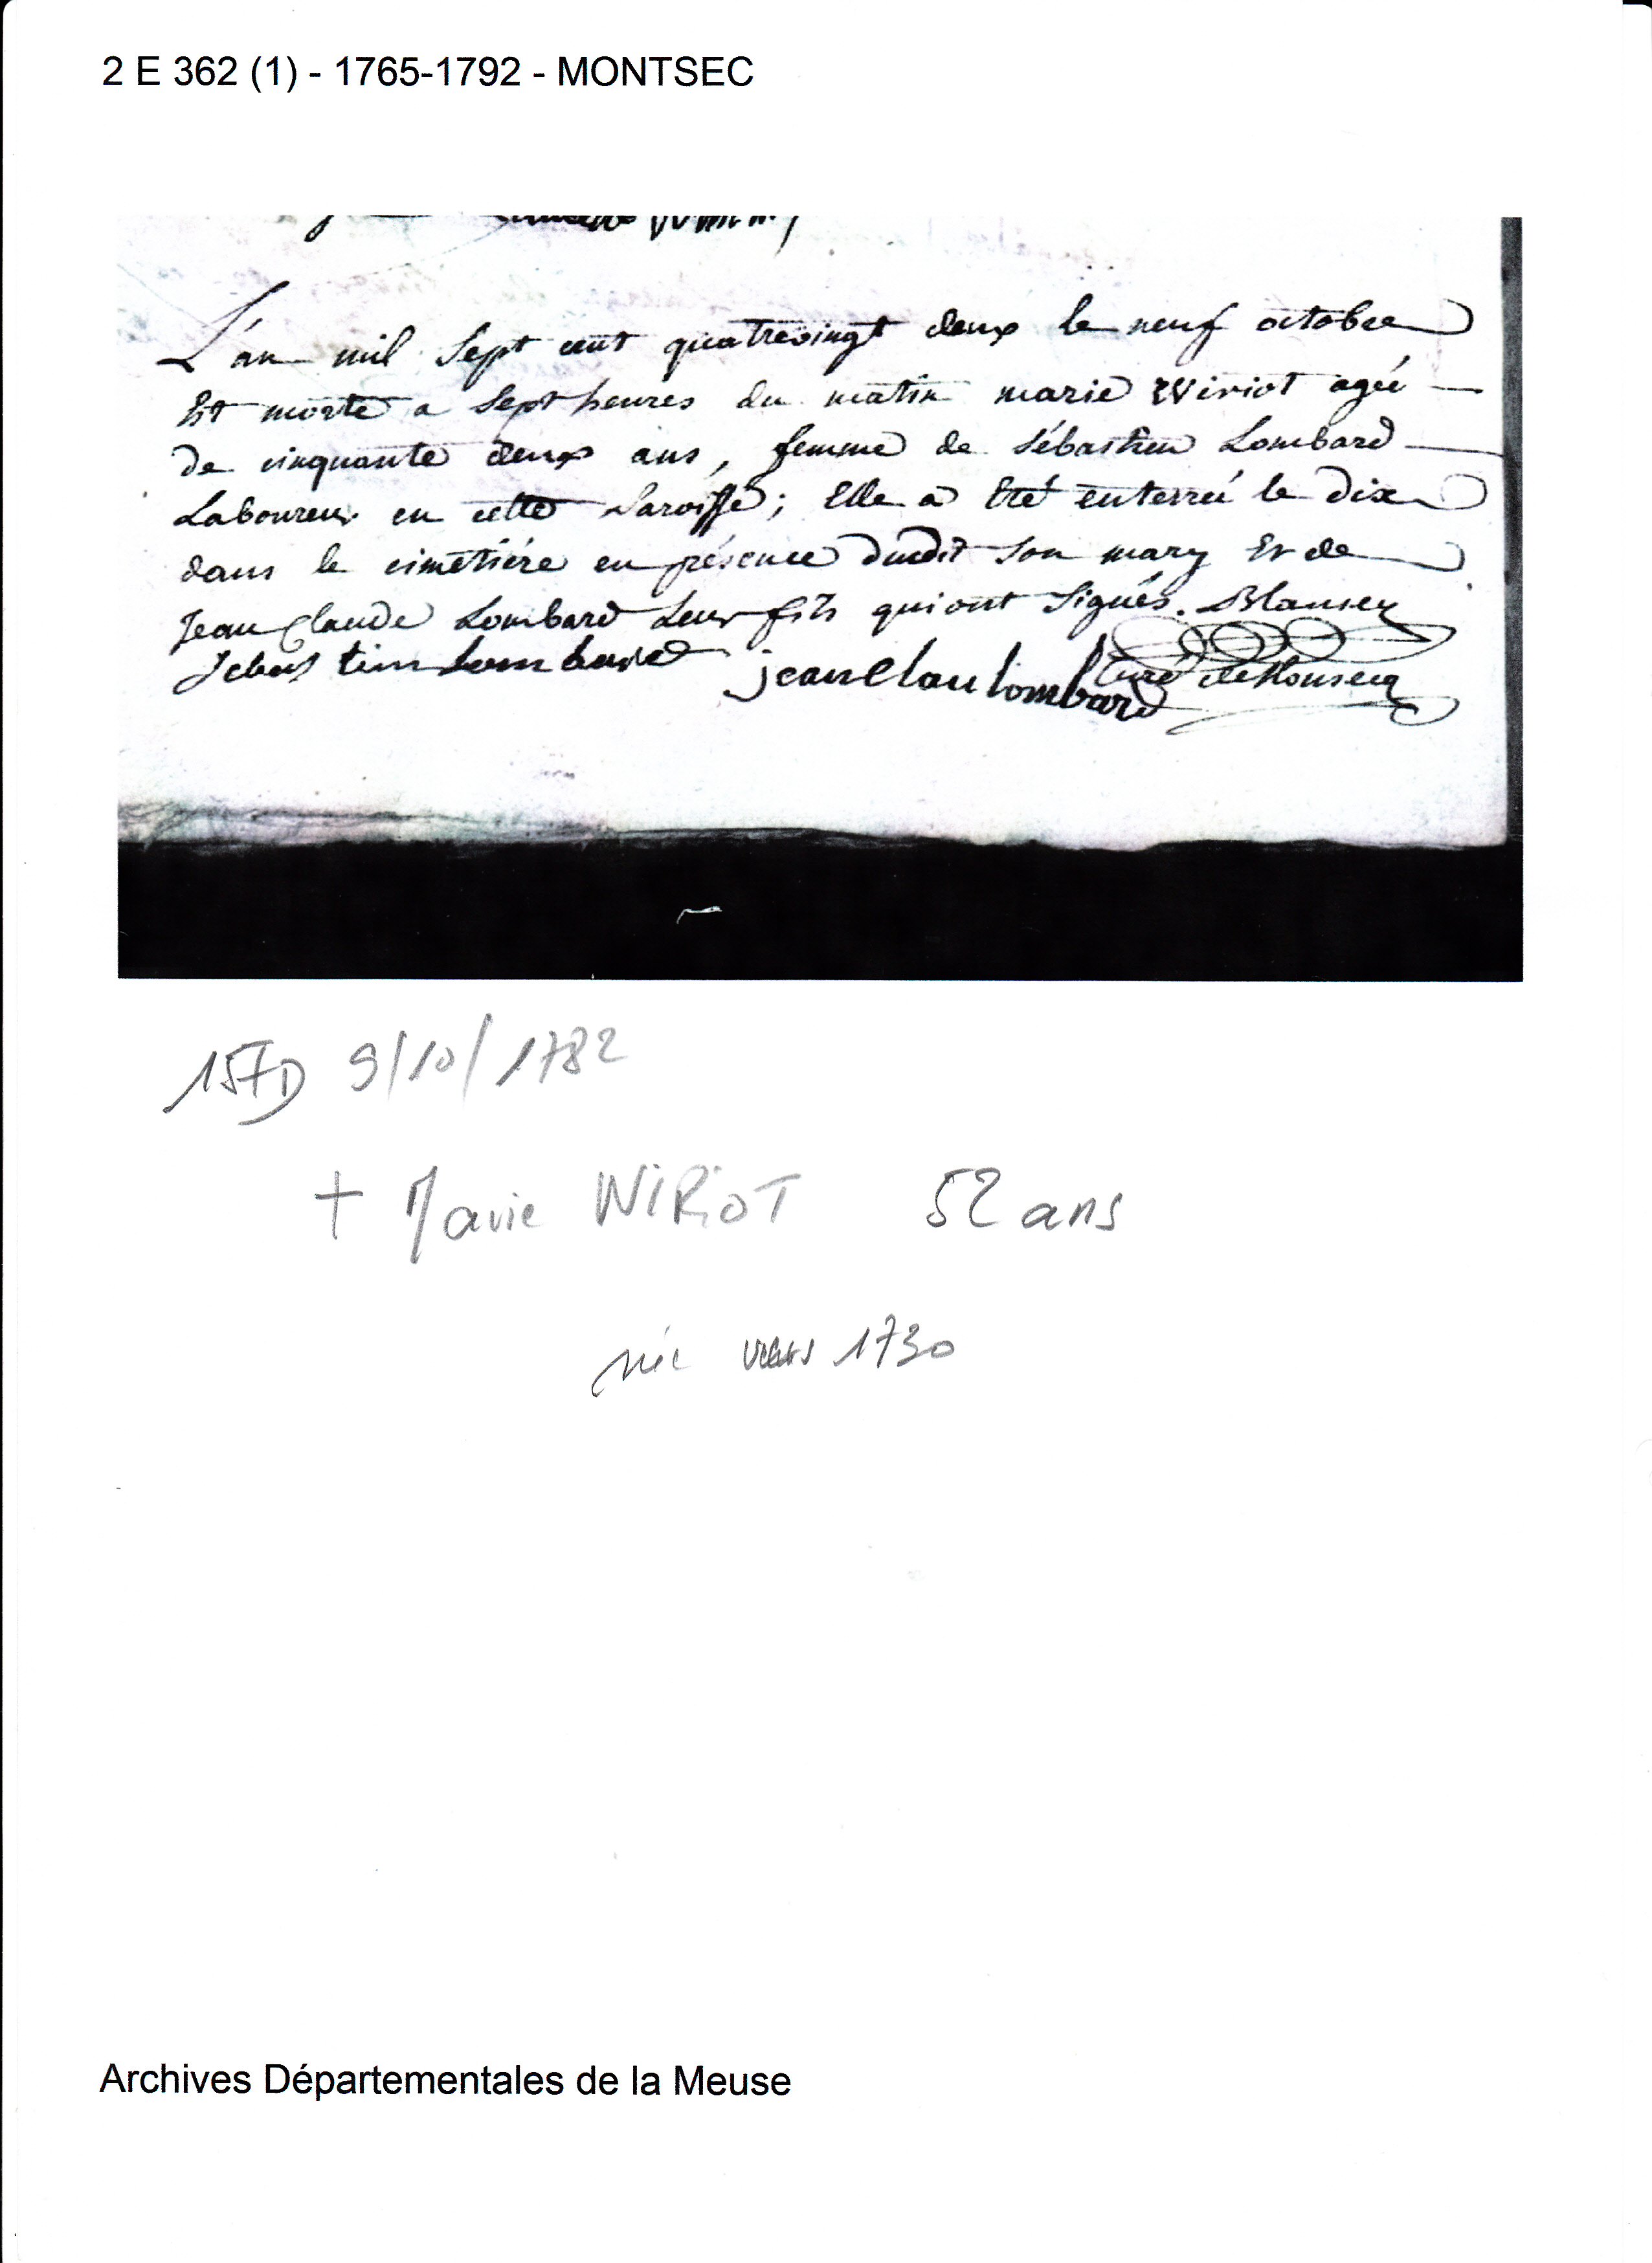 2 E 362 (1) - 1765-1792 - MONTSEC
L'an mil sept cent quatrevingt deux le neuf octobre
Est morte a sept heures du matin marie Wiriot agée
de cinquante deux ans, femme de sébastien Lombard
Laboureur en cette Paroisse; Elle a Eté enterreé le dix
dans le cimetiére en présence dudit son mary Et de
Jean Claude Lombard Leur fils qui ont signés. Blansey
Sebas tien Lombard jean Clau lombard Curé de Monsecq
157D 9/10/1782
+ Marie WIRIOT 52 ans
née vers 1730
Archives Départementales de la Meuse